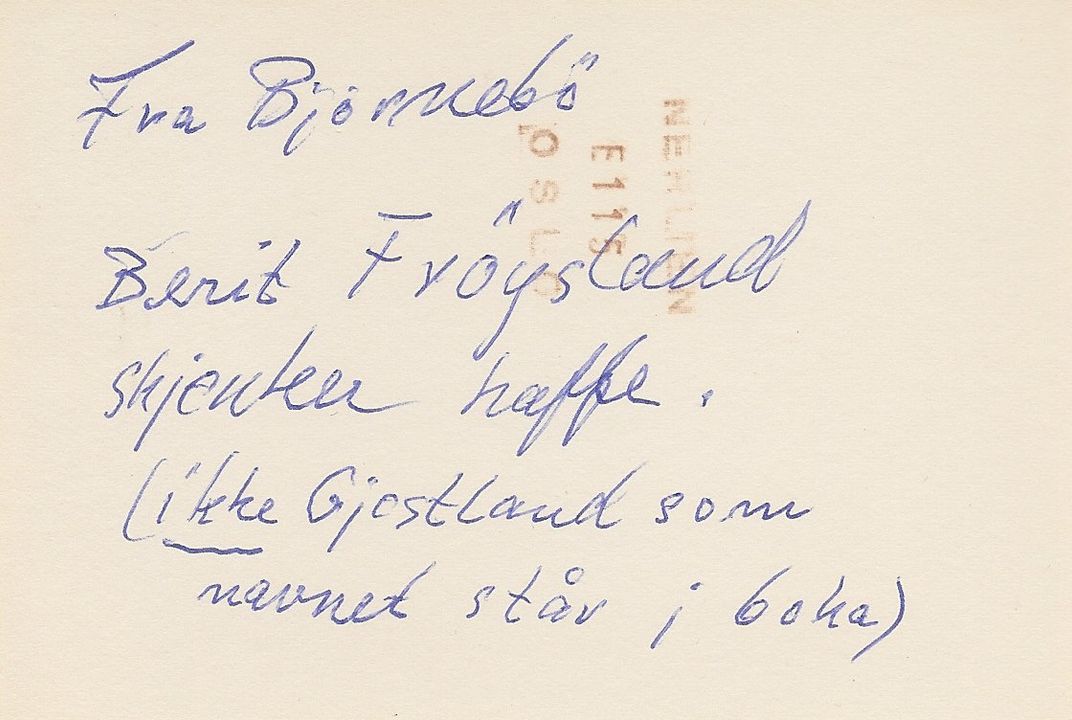 Fra Bjørnebö
Berit Fröysland
skjenker kaffe.
(ikke Gjostland som
navnet står i boka)
E115
OSLO